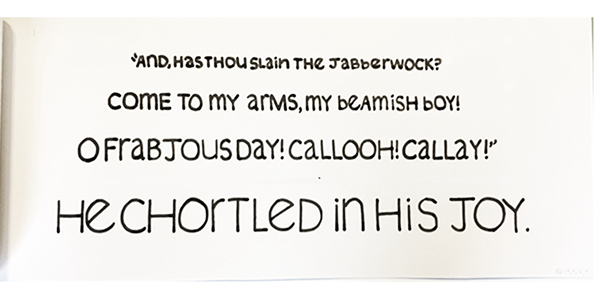 "AND, HAS THOU SLAIN THE JABBERWOCK?
COME TO MY ARMS, MY BEAMISH BOY!
O FRABJOUS DAY! CALLOOH! CALLAY!"
HE CHORTLED IN HIS JOY.